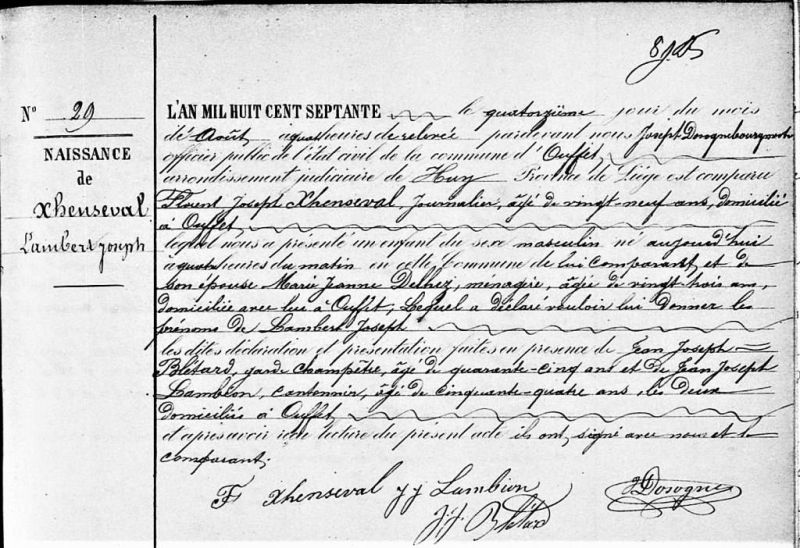 N° 29
NAISSANCE
de
Xhenseval
Lambert Joseph
L'AN MIL HUIT CENT SEPTANTE le quatorzième jour du mois
de Août, à quatre heures de relevée pardevant nous Joseph Dosogne bourgmestre
officier public de l'état civil de la commune d'Ouffet,
arrondissement judiciaire de Huy Province de Liége est comparu
Florent Joseph Xhenseval, Journalier, âgé de vingt-neuf ans, domicilié
à Ouffet,
lequel nous a présenté un enfant du sexe masculin né aujourd'hui
à quatre heures du matin en cette Commune de lui comparant, et de
son épouse Marie Jeanne Delhez, ménagère, âgée de vingt-trois ans,
domiciliée avec lui à Ouffet; Lequel a déclaré vouloir lui donner les
prénoms de Lambert Joseph
les dites déclaration et présentation faites en présence de Jean Joseph
Blétard, garde champêtre, âgé de quarante-cinq ans et de Jean Joseph
Lambion, cantonnier, âgé de cinquante-quatre ans, les deux
domiciliés à Ouffet,
et après avoir reçu lecture du présent acte ils ont signé avec nous et le
comparant.
F Xhenseval J J Lambion
J. J. Blétard
J Dosogne